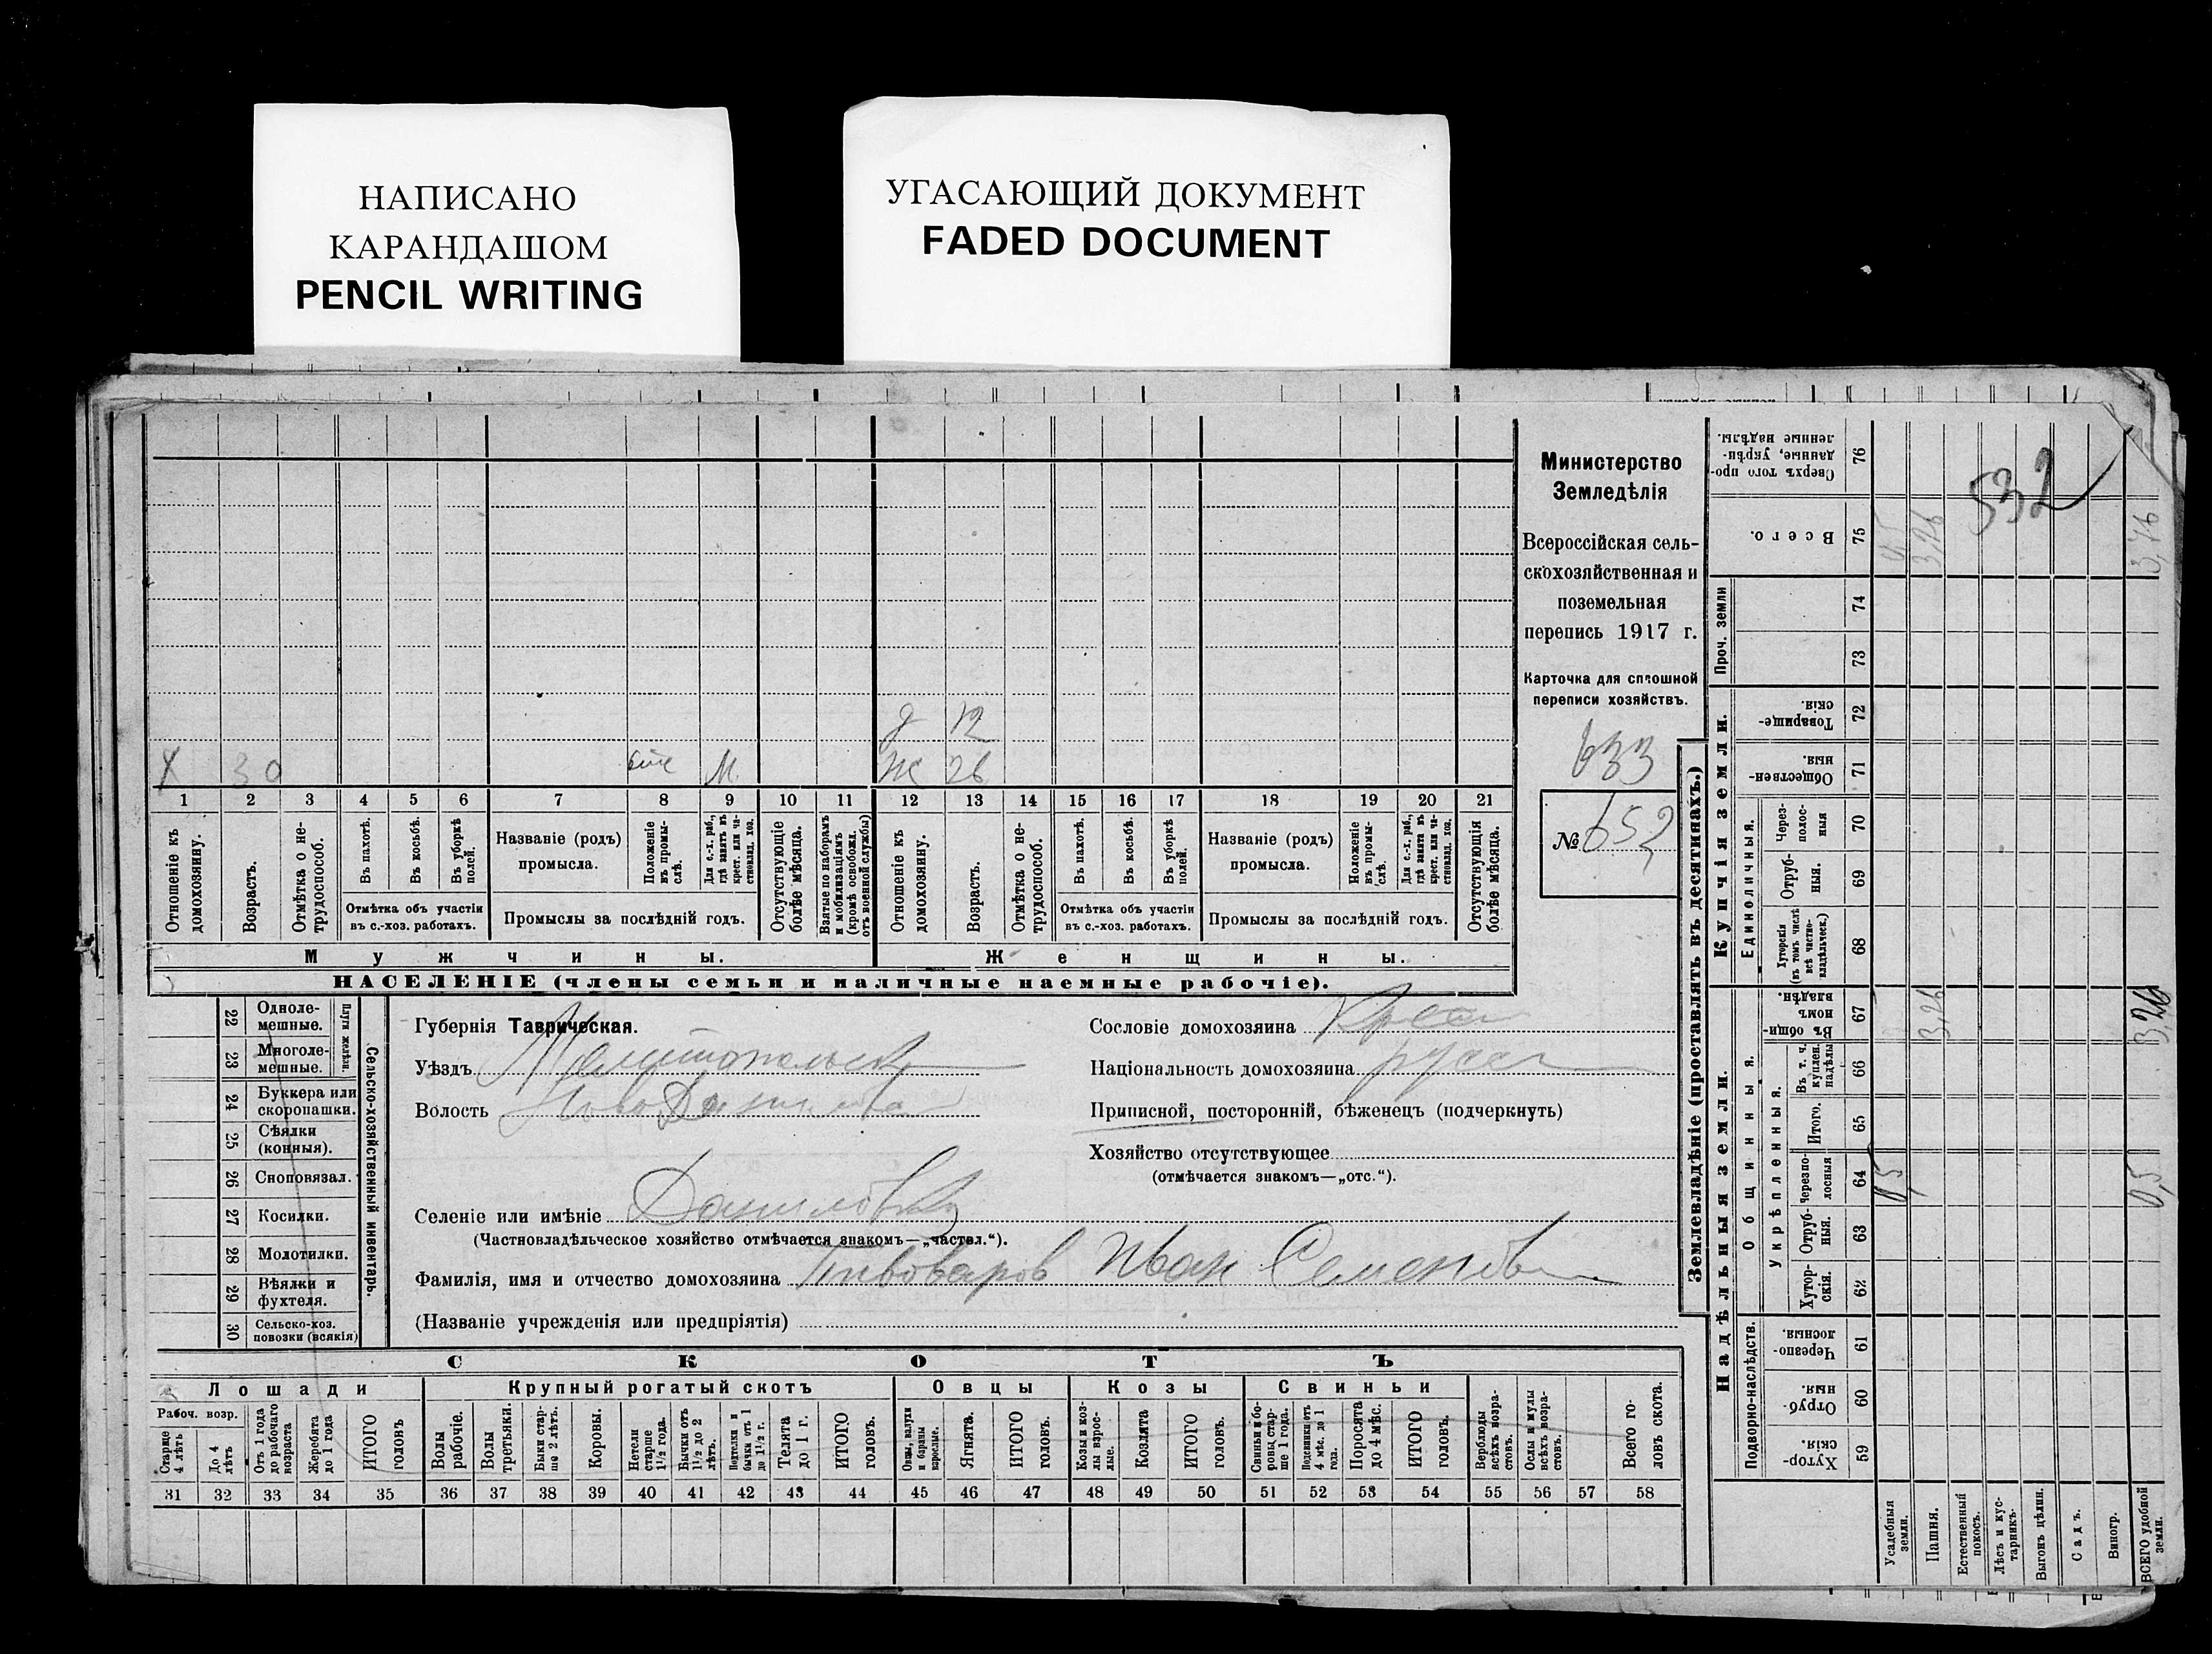 НАПИСАНО
КАРАНДАШОМ
PENCIL WRITING
УГАСАЮЩИЙ ДОКУМЕНТ
FADED DOCUMENT
Министерство
Земледѣлія
Всероссійская сель-
скохозяйственная и
поземельная
перепись 1917 г.
Карточка для сплошной
переписи хозяйствъ.
633
№ 652
532
д 12
Х 30 М Ж 26
1 2 3 4 5 6 7 8 9 10 11 12 13 14 15 16 17 18 19 20 21
Отношеніе къ домохозяину.
Возрастъ.
Отмѣтка о не-трудоспособ.
Въ пахотѣ.
Въ косьбѣ.
Въ уборкѣ полей.
Отмѣтка объ участіи
въ с.-хоз. работахъ.
Названіе (родъ)
промысла.
Положеніе въ промы-слѣ.
Для с.-х. раб., гдѣ занятъ въ крест. или ча-стновлад. хоз.
Промыслы за послѣдній годъ.
Отсутствующіе болѣе мѣсяца.
Взятые по наборамъ и мобилизаціямъ (кромѣ освобожд. отъ военной службы)
Отношеніе къ домохозяину.
Возрастъ.
Отмѣтка о не-трудоспособ.
Въ пахотѣ.
Въ косьбѣ.
Въ уборкѣ полей.
Отмѣтка объ участіи
въ с.-хоз. работахъ.
Названіе (родъ)
промысла.
Положеніе въ промы-слѣ.
Для с.-х. раб., гдѣ занятъ въ крест. или ча-стновлад. хоз.
Промыслы за послѣдній годъ.
Отсутствующія болѣе мѣсяца.
Мужчины.
Женщины.
НАСЕЛЕНІЕ (члены семьи и наличные наемные рабочіе).
22 Одноле-мешные.
23 Многоле-мешные.
Плуги желѣзн.
24 Буккера или скоропашки.
25 Сѣялки (конныя).
26 Сноповязал.
27 Косилки.
28 Молотилки.
29 Вѣялки и фухтеля.
30 Сельско-хоз. повозки (всякія)
Сельско-хозяйственный инвентарь.
Губернія Таврическая.
Уѣздъ Мелитопольск
Волость
Селеніе или имѣніе Даниловка
(Частновладѣльческое хозяйство отмѣчается знакомъ—„частвл.“).
Фамилія, имя и отчество домохозяина Пивоваров Иван Семенов
(Названіе учрежденія или предпріятія)
Сословіе домохозяина Крес
Національность домохозяина русс
Приписной, посторонній, бѣженецъ (подчеркнуть)
Хозяйство отсутствующее
(отмѣчается знакомъ—„отс.“).
СКОТЪ
Лошади
Крупный рогатый скотъ
Овцы
Козы
Свиньи
Рабоч. возр.
Старше 4 лѣтъ
До 4 лѣтъ
Отъ 1 года до рабочаго возраста
Жеребята до 1 года
ИТОГО головъ
Волы рабочіе.
Волы третьяки.
Быки стар-ше 2 лѣтъ.
Коровы.
Нетели старше 1½ года.
Бычки отъ 1½ до 2 лѣтъ.
Подтелки и бычки отъ 1 до 1½ г.
Телята до 1 г.
ИТОГО головъ.
Овцы, валухи и бараны взрослые.
Ягнята.
ИТОГО головъ.
Козы и коз-лы взрос-лые.
Козлята
ИТОГО головъ.
Свиньи и бо-ровы стар-ше 1 года.
Подсвинки отъ 4 мѣс. до 1 года.
Поросята до 4 мѣс.
ИТОГО головъ.
Верблюды всѣхъ возра-стовъ.
Ослы и мулы всѣхъ возра-стовъ.
Всего го-ловъ скота.
31 32 33 34 35 36 37 38 39 40 41 42 43 44 45 46 47 48 49 50 51 52 53 54 55 56 57 58
Землевладѣніе (проставлять въ десятинахъ.)
Надѣльныя земли.
Купчія земли.
Проч. земли
Подворно-наслѣдств.
Общинныя.
Укрѣпленныя.
Единоличныя.
Сверхъ того про-данные, укрѣп-ленные надѣлы. 76
Всего. 75 0,5 3,26 3,76
74
73
Товарище-скія. 72
Обществен-ныя. 71
Через-полос-ныя 70
Отруб-ныя. 69
Хуторскія (въ томъ числѣ всѣ частно-владѣльческ.) 68
Въ общин-номъ владѣн. 67 3,26 3,26
Въ т. ч. куплен. надѣлы 66
Итого. 65
Черезпо-лосныя 64 0,5 0,5
Отруб-ныя. 63
Хутор-скія. 62
Черезпо-лосныя. 61
Отруб-ныя. 60
Хутор-скія. 59
Усадебныя земли.
Пашня.
Естественный покосъ.
Лѣсъ и кус-тарникъ.
Выгонъ цѣлин.
Садъ.
Виногр.
ВСЕГО удобной земли.